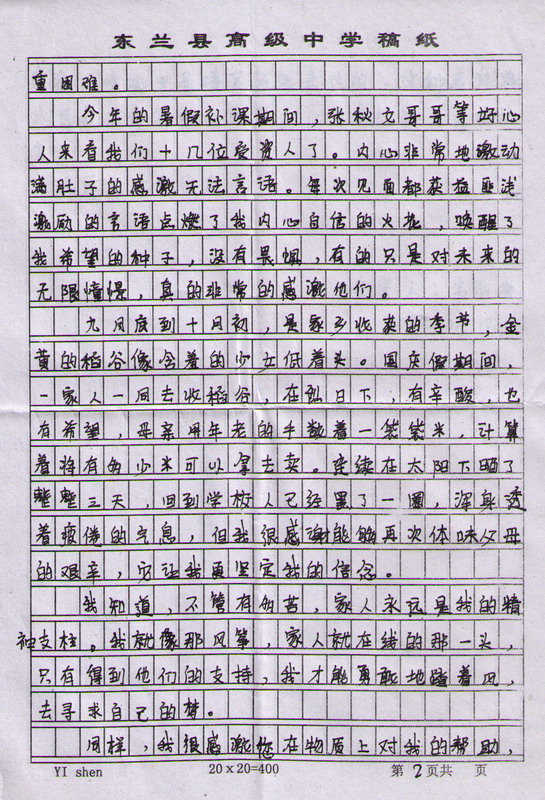 东兰县高级中学稿纸
重困难。
今年的暑假补课期间，张秋文哥哥等好心
人来看我们十几位受资人了。内心非常地激动
满肚子的感激无法言语。每次见面都获益匪浅
激励的言语点燃了我内心自信的火把，唤醒了
我希望的种子，没有畏惧，有的只是对未来的
无限憧憬，真的非常的感激他们。
九月底到十月初，是家乡收获的季节，金
黄的稻谷像含羞的少女低着头。国庆假期间，
一家人一同去收稻谷，在烈日下，有辛酸，也
有希望，母亲用年老的手数着一袋袋米，计算
着将有多少米可以拿去卖。连续在太阳下晒了
整整三天，回到学校人已经黑了一圈，浑身透
着疲倦的气息，但我很感谢能够再次体味父母
的艰辛，它让我更坚定我的信念。
我知道，不管有多苦，家人永远是我的精
神支柱。我就像那风筝，家人就在线的那一头，
只有得到他们的支持，我才能勇敢地随着风，
去寻求自己的梦。
同样，我很感激您在物质上对我的帮助，
YI shen 20x20=400 第2页共 页